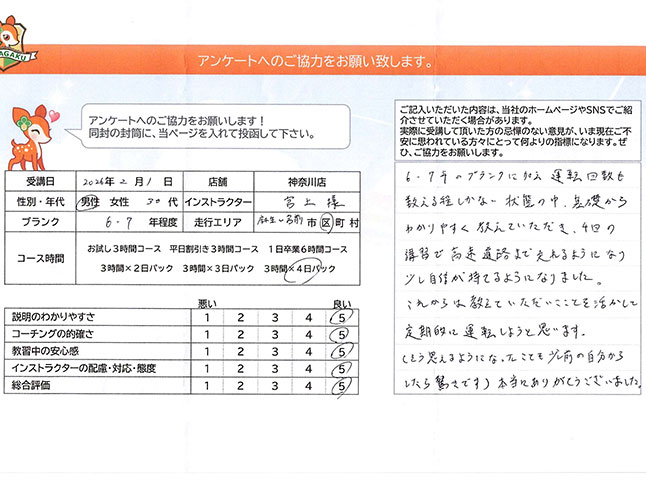 AGAKU
アンケートへのご協力をお願い致します。
アンケートへのご協力をお願いします！
同封の封筒に、当ページを入れて投函して下さい。
受講日 2026年2月1日 店舗 神奈川店
性別・年代 男性 女性 30代 インストラクター 宮上様
ブランク 6-7 年程度 走行エリア 市 区 町 村
コース時間 お試し3時間コース 平日割引き3時間コース 1日卒業6時間コース
3時間×2日パック 3時間×3日パック 3時間×4日パック
悪い 良い
説明のわかりやすさ 1 2 3 4 5
コーチングの的確さ 1 2 3 4 5
教習中の安心感 1 2 3 4 5
インストラクターの配慮・対応・態度 1 2 3 4 5
総合評価 1 2 3 4 5
ご記入いただいた内容は、当社のホームページやSNSでご紹
介させていただく場合があります。
実際に受講して頂いた方の忌憚のない意見が、いま現在ご不
安に思われている方々にとって何よりの指標になります。ぜ
ひ、ご協力をお願いします。
6-7年のブランクに加え 運転回数も
数える程しかない 状態の中、基礎から
わかりやすく 教えていただき、4回の
講習で 高速道路まで走れるようになり
少し自信が持てるようになりました。
これからは教えていただいたことを活かして
定期的に運転しようと思います。
(そう思えるようになったことも 以前の自分から
したら驚きです) 本当にありがとうございました。